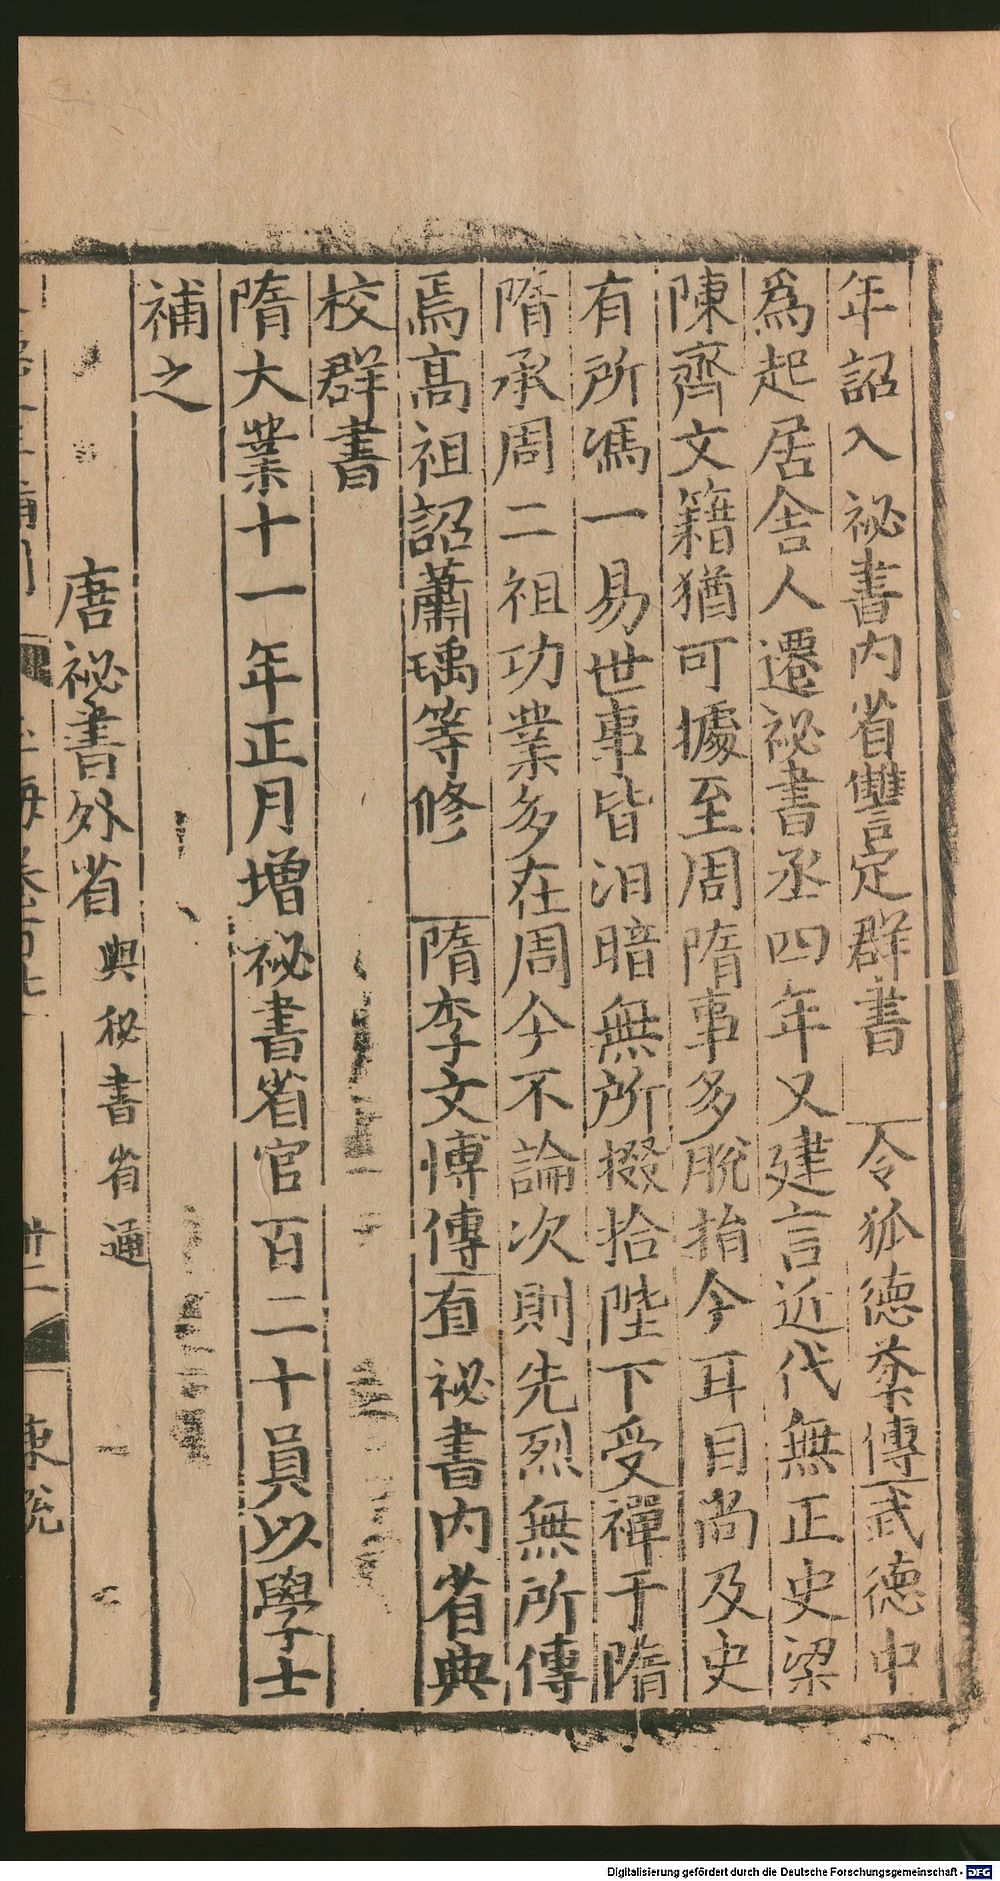 年詔入祕書内省讐定群書　令狐德棻傳武德中
爲起居舍人遷祕書丞四年又建言近代無正史梁
陳齊文籍猶可據至周隋事多脫捐今耳目尚及史
有所馮一易世事皆汨暗無所掇拾陛下受禪于隋
隋承周二祖功業多在周今不論次則先烈無所傳
焉高祖詔蕭瑀等修　隋李文博傳直祕書内省典
校群書
隋大業十一年正月増祕書省官百二十員以學士
補之
唐祕書外省 與秘書省通
海卷百
卅二
Digitalisierung gefördert durch die Deutsche Forschungsgemeinschaft - DFG